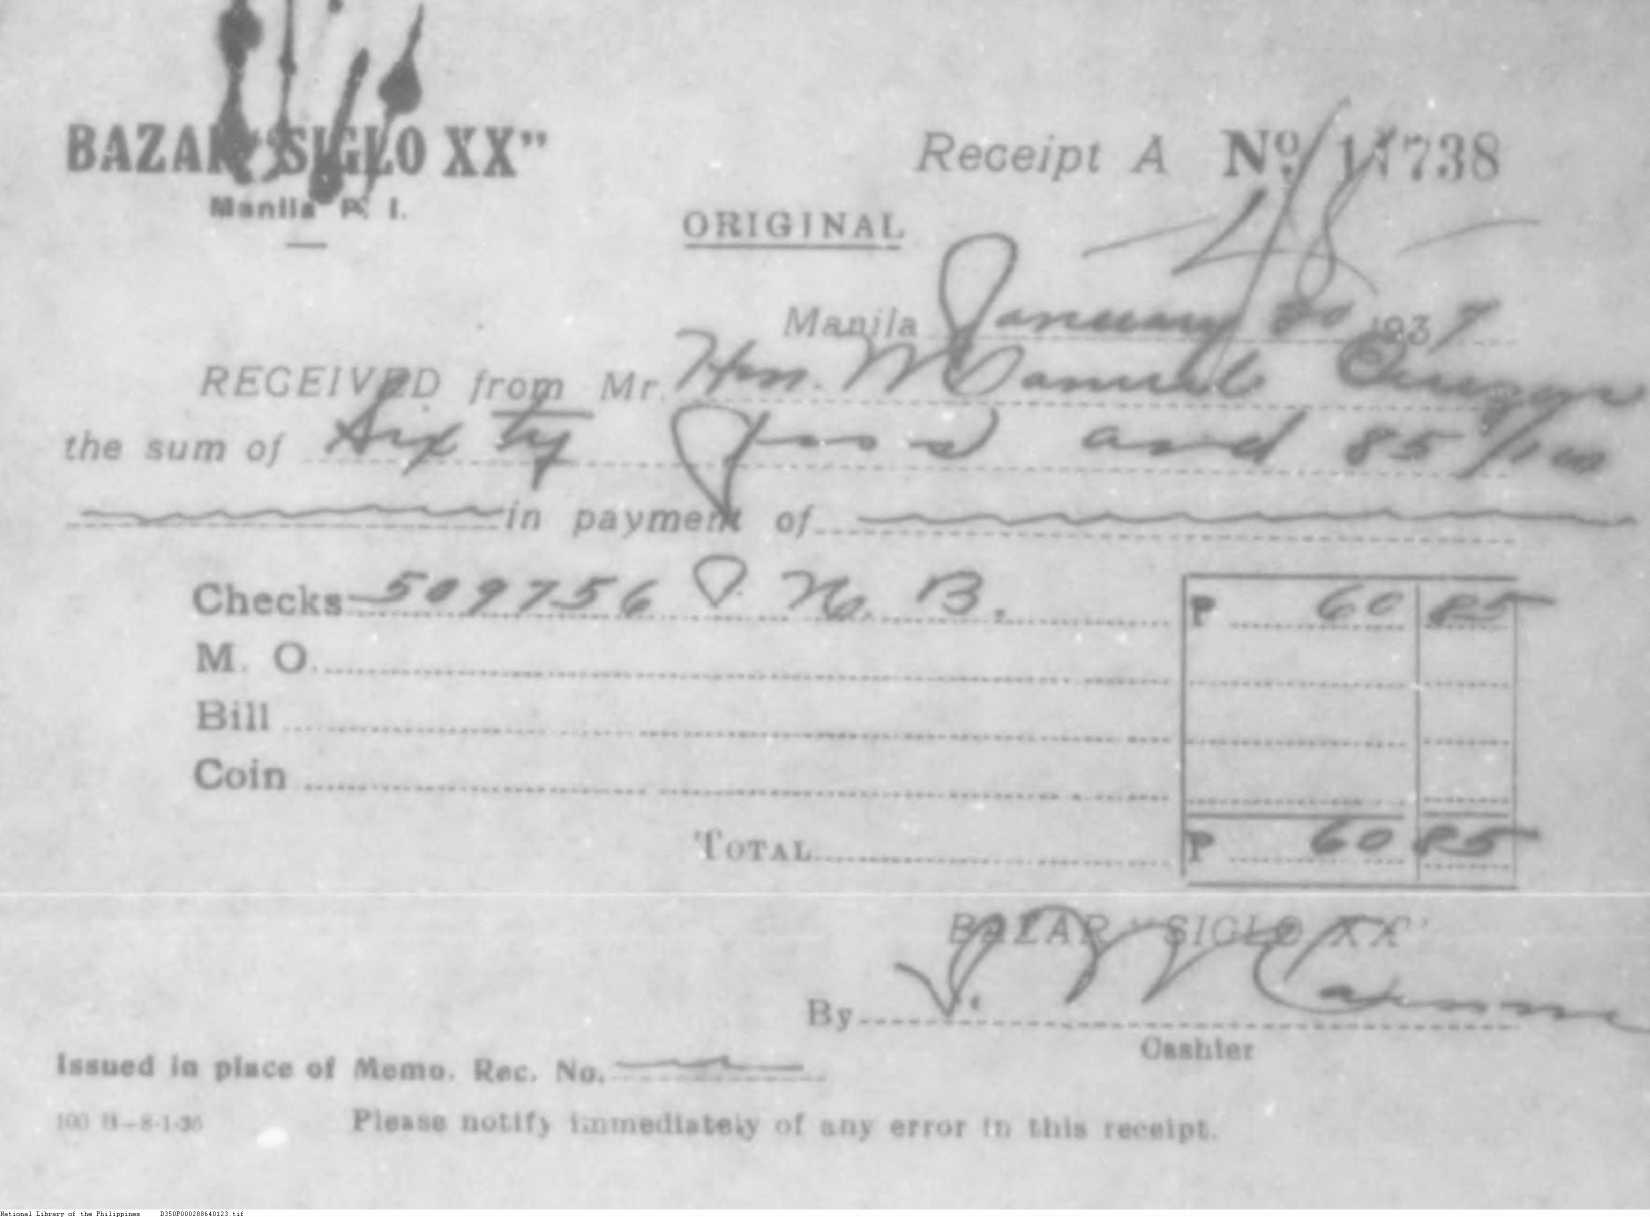 BAZAR "SIGLO XX"
Manila P. I.
Receipt A Nº 11738
48
ORIGINAL
Manila January 20 1937
RECEIVED from Mr. Hon. Manuel
the sum of Sixty Pesos and 85/100
in payment of
Checks 509756 P. N. B. P 60 85
M. O.
Bill
Coin
TOTAL P 60 85
BAZAR "SIGLO XX"
By
Cashier
Issued in place of Memo. Rec. No.
100 B-8-1-36 Please notify immediately of any error in this receipt.
National Library of the Philippines D350P000288640123.tif